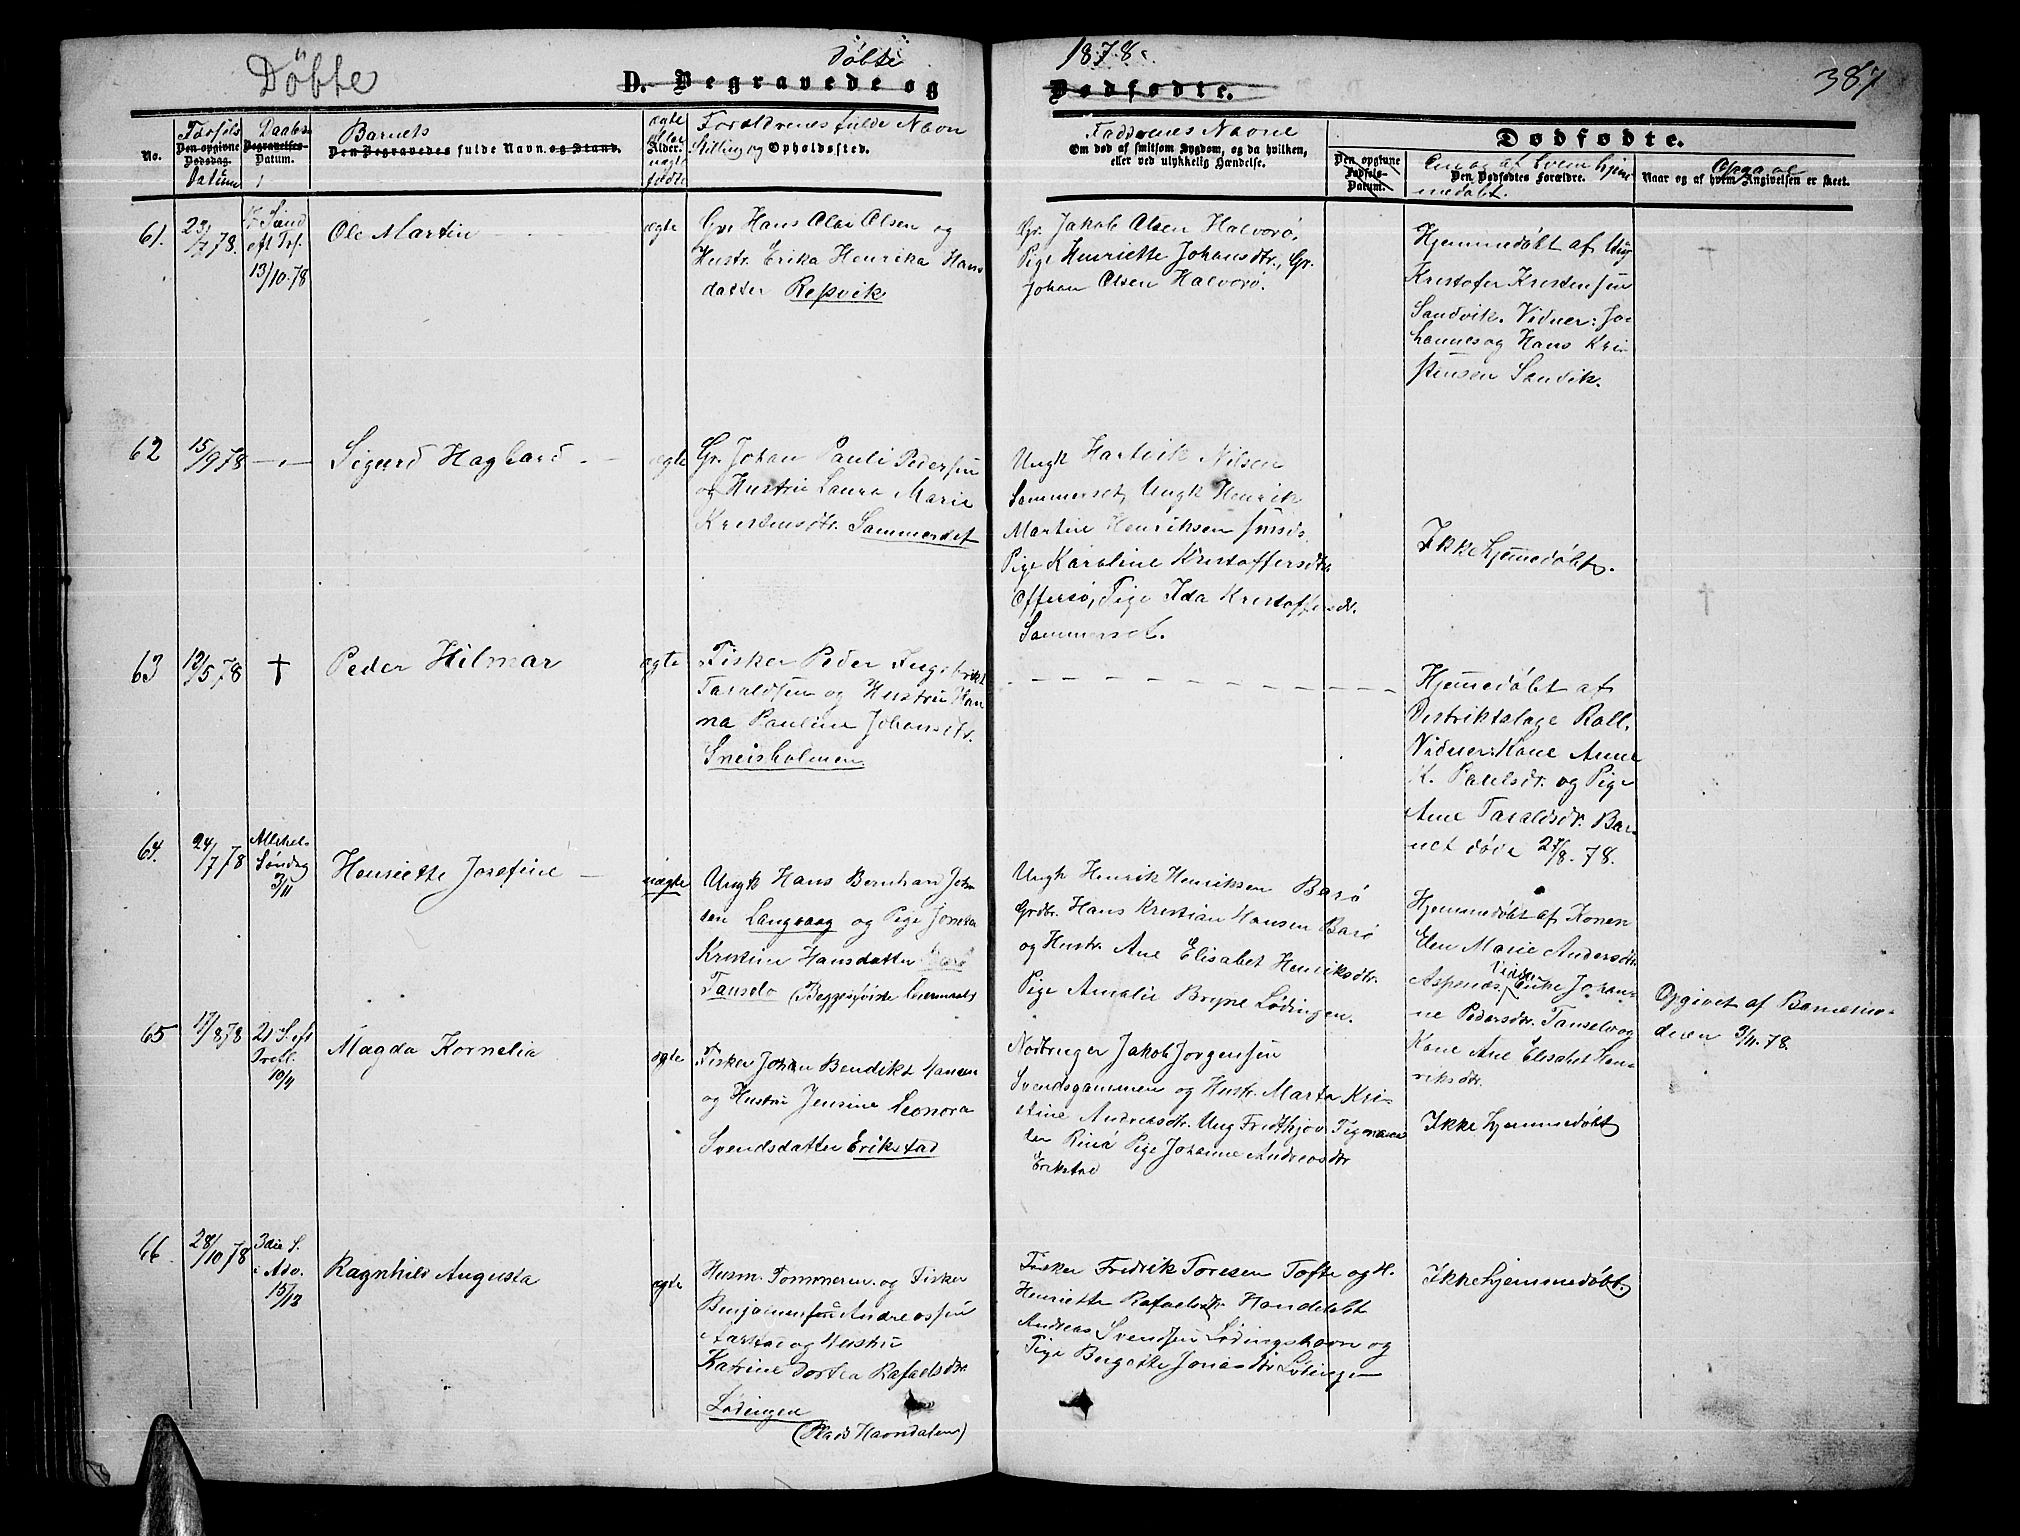 Döbte
Döbte
1878.
387
D. Begravede og
Dødfødte.
No.
Fødsels
Den opgivne
Dødsdag.
Datum
Daabs
Begravelses-
Datum.
Barnets
Den Begravedes fulde Navn og Stand.
ægte
eller
Alder.
uægte
født
Forældrenes fulde Navn
Stilling og Opholdssted.
Faddernes Navne
Om død af smitsom Sygdom, og da hvilken,
eller ved ulykkelig Hændelse.
Dødfødte.
Den opgivne
Fødsels-
Datum.
Om og af hvem hjem-
Den Dødfødtes Forældre.
medøbt.
Naar og af hvem Angivelsen er skeet.
61.
23/7 78.
eft Trf.
13/10-78
Ole Martin
ægte
Gr Hans Olai Olsen og
Hustr. Erika Henrika Hans
datter Repvik
Gr. Jakob Olsen Halvorö,
Pige Henriette Johansdtr., Gr.
Johan Olsen Halvorö.
Hjemmedöbt af Ung
Kristofer Kristensen
Sandvik. Vidner: Jo-
hannes og Hans Kri-
stensen Sandvik.
62
15/9 78
Sigurd Hagbard
ægte
Gr. Johan Pauli Pedersen
og Hustru Laura Marie
Kristensdtr. Sommerset
Ungk Hartvik Nilsen
Sommerset, Ungk Henrik
Martin Henriksen
Pige Karoline Kristoffersdtr
Offersö, Pige Ida Kristoffersdtr.
Sommerset.
Ikke hjemmedöbt.
63
12/5 78
†
Peder Hilmar
ægte
Fisker Peder Ingebrikt
Taraldsen og Hustru Han
na Pauline Johansdtr.
Sneisholmen
Hjemmedöbt af
Distriktslæge Roll.
Vidner: Kone Anne
K. Paulsdtr. og Pige
Ane Taraldsdtr. Bar-
net döde 27/8-78.
64.
24/7 78
Allehel.
Söndag
3/11
Henriette Josefine
uægte
Ungk Hans Bernhard Johan
sen Langvaag og Pige
Kristine Hansdatter
Tanselv (Begges förste Leiermaal)
Ungk Henrik Henriksen Barö
Grdbr. Hans Kristian Hansen Barö
og Hustr. Ane Elisabet Henriksdtr.
Pige Amalie Bryne Lödingen.
Hjemmedöbt af Konen
Elen Marie Andersdtr.
Aspenes, Vidner Enke Johan-
ne Pedersdtr. Tanselv og
Kone Ane Elisabet Hen-
riksdtr.
Opgivet af Barnemo-
deren 3/11.78.
65
17/8 78
21 S. eft
Tref.
10/11
Magda Kornelia
ægte
Fisker Johan Bendikt Hansen
og Hustru Jensine Leonora
Svendsdatter Erikstad
Nordmger Jakob Jorgensen
Svendsgammen og Hustr. Marta Kri-
stine Andreasdtr. Ung Fridthjov
Rinö Pige Johanne Andreasdtr
Erikstad
Ikke hjemmedöbt
66.
28/10 78
3die S.
i Adv.
15/12
Ragnhild Augusta
ægte
Husm. Tömmerm. og Fisker
Benjamin Andreassen
og Hustru
Katrine Dortea Rafaelsdtr
Lödingen
(Plads Havndalen)
Fisker Fredrik Toresen Tofte og H.
Henriette Rafaelsdtr. Handelsbt
Andreas Svendsen Lödingshavn og
Pige Bergitte Jonasdtr Lödingen
Ikke hjemmedöbt.